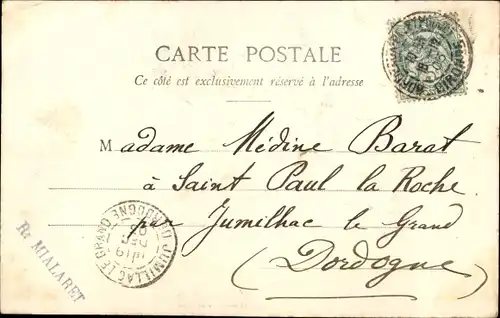 CARTE POSTALE
Ce côté est exclusivement réservé à l'adresse
Madame Médine Barat
à Saint Paul la Roche
par Jumilhac le Grand
(Dordogne)
JUMILLAC LE GRAND DORDOGNE
DEC
MIALARET